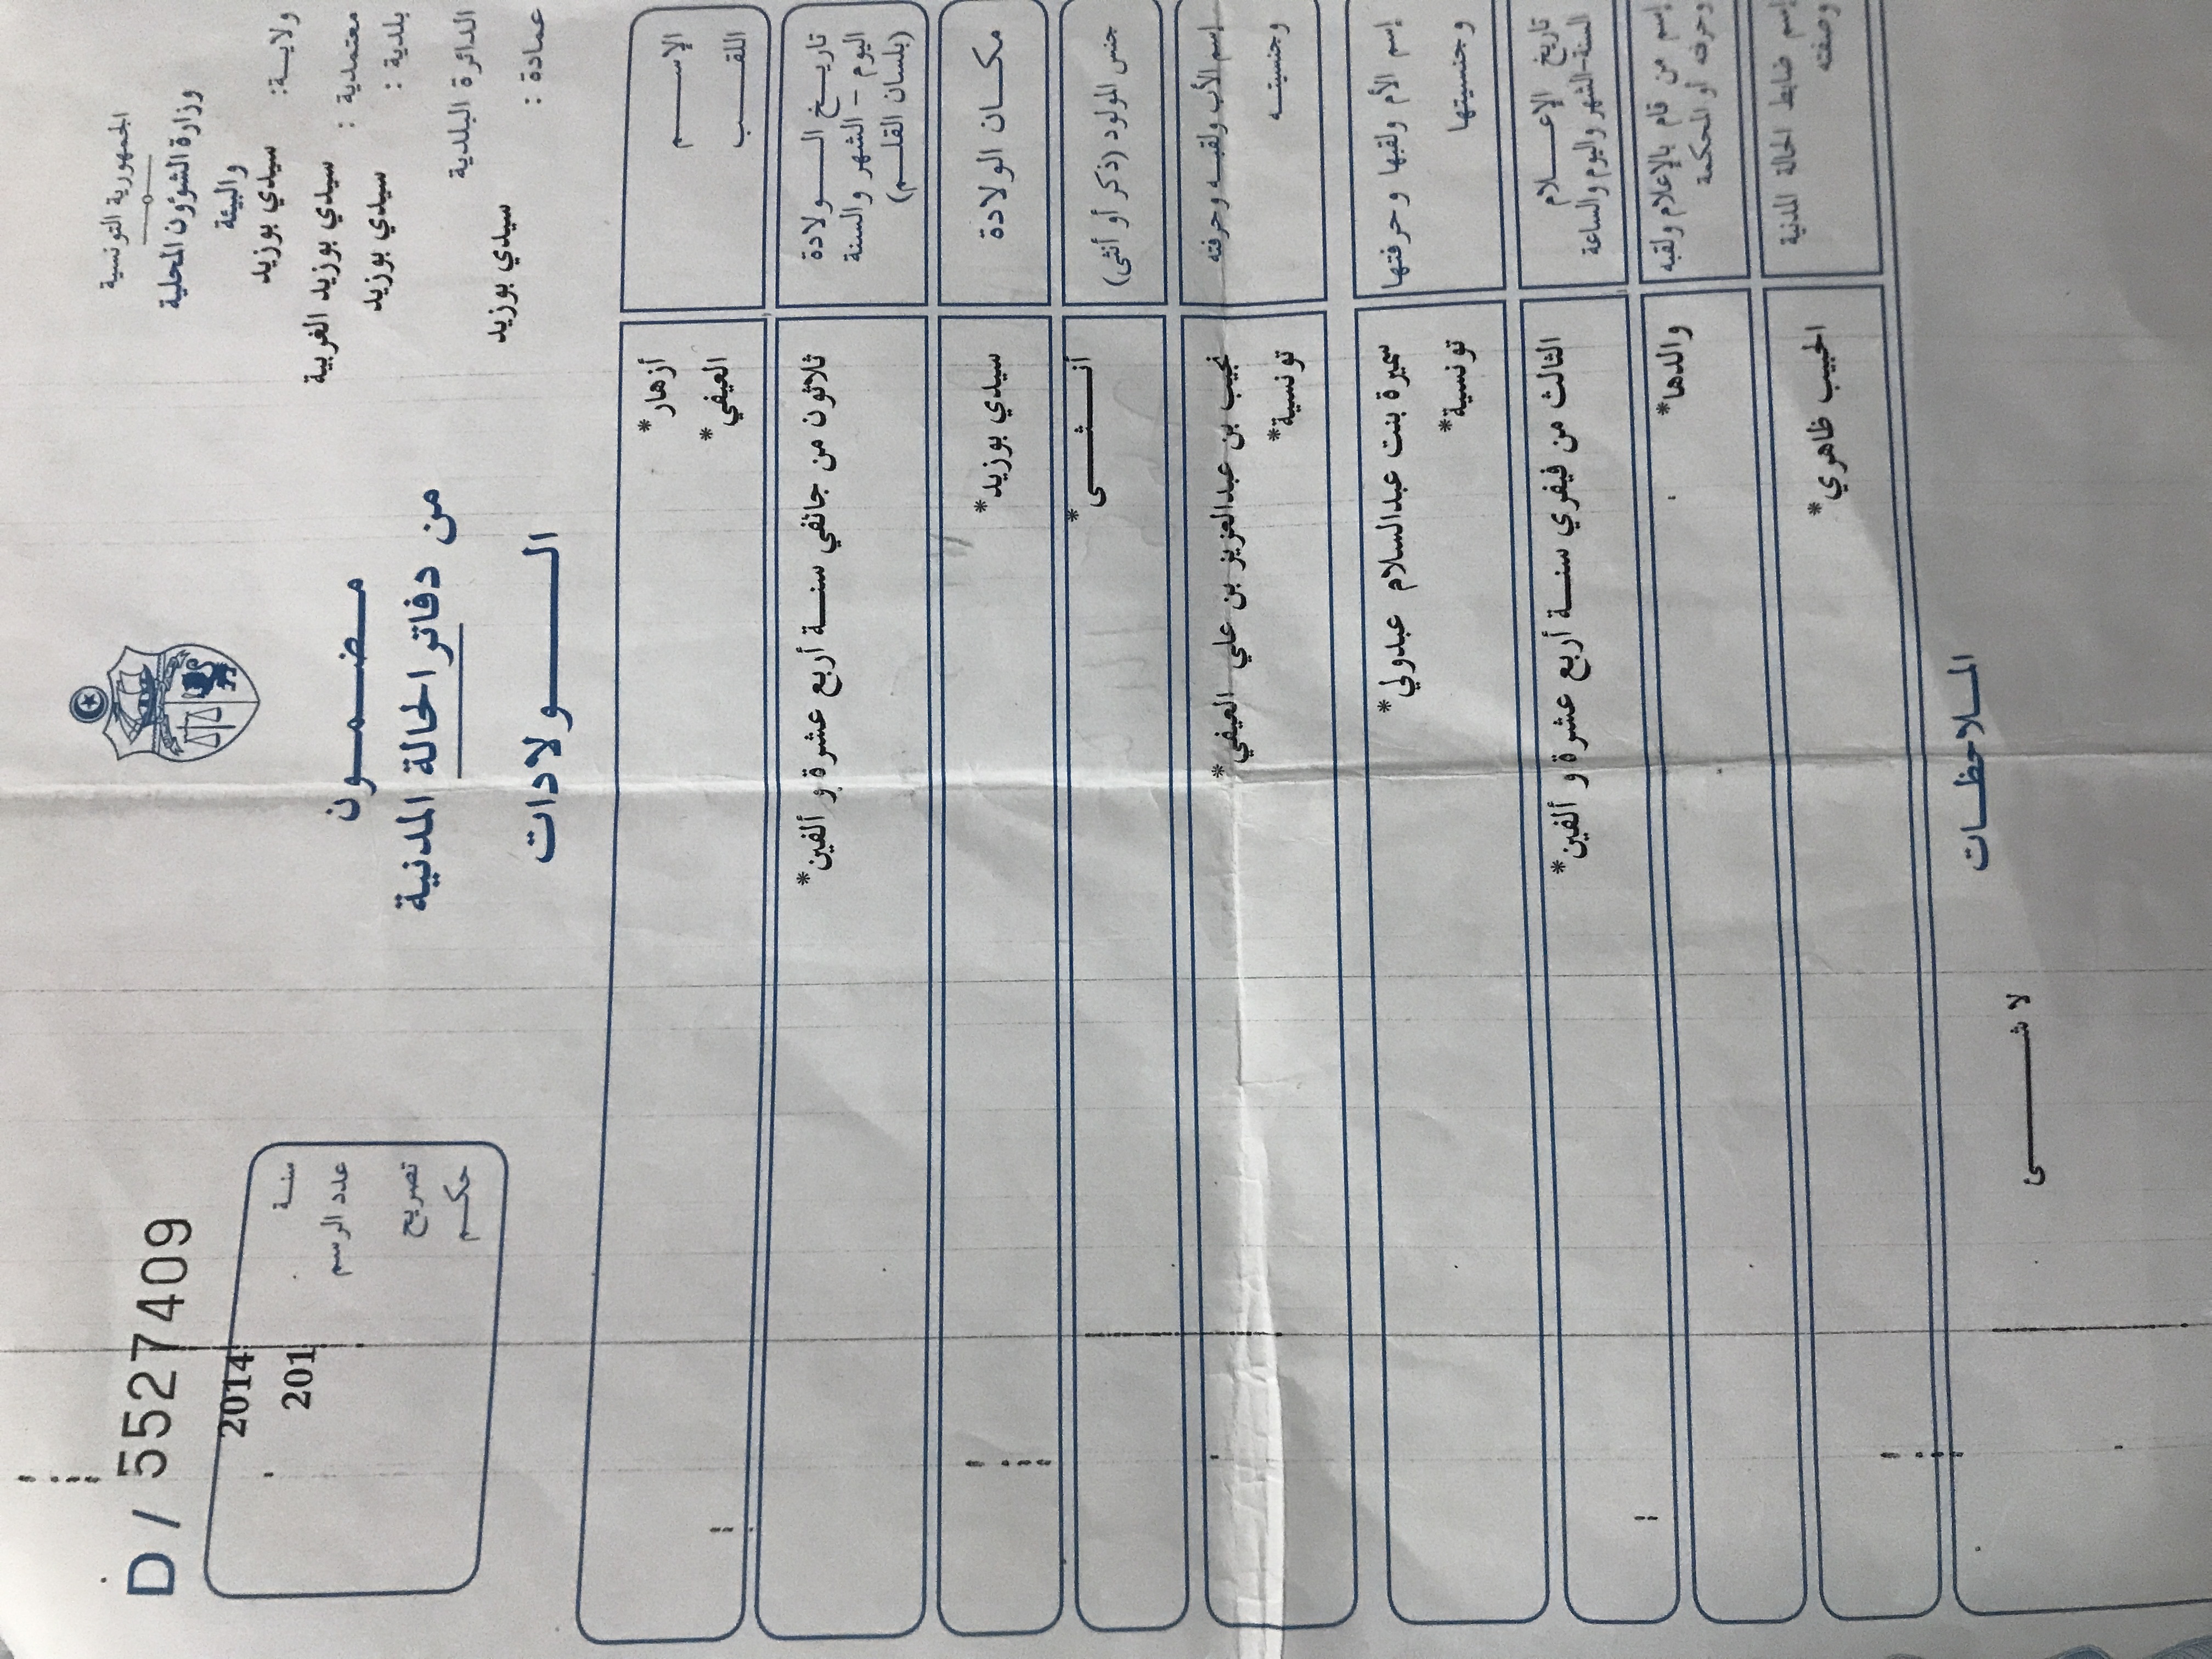 الجمهورية التونسية
وزارة الشؤون المحلية
والبيئة
ولايـة: سيدي بوزيد
معتمدية : سيدي بوزيد الغربية
بلدية : سيدي بوزيد
الدائرة البلدية
سيدي بوزيد
عمادة :
مـضـمـون
من دفاتر الحالة المدنية
الـولادات
D / 5527409
سنـة 2014
عدد الرسم 201
تصريح
حكـم
الإسـم أزهار*
اللقـب العيفي*
تاريـخ الـولادة
اليوم - الشهر والسنة
(بلسان القلـم)
ثلاثون من جانفي سنـة أربع عشرة و ألفين*
مكـان الولادة سيدي بوزيد*
جنس المولود (ذكر أو أنثى) أنـثـى*
إسم الأب ولقبـه وحرفته نجيب بن عبدالعزيز بن علي العيفي*
وجنسيتـه تونسية*
إسم الأم ولقبها وحرفتها سميرة بنت عبدالسلام عبدولي*
وجنسيتها تونسية*
تاريخ الإعـلام
السنة-الشهر واليوم والساعة
الثالث من فيفري سنـة أربع عشرة و ألفين*
إسم من قام بالإعلام ولقبه
وحرفته أو المحكمة
والدها*
إسم ضابط الحالة المدنية
وصفته
الحبيب ظاهري*
المـلاحظـات
لا شـى